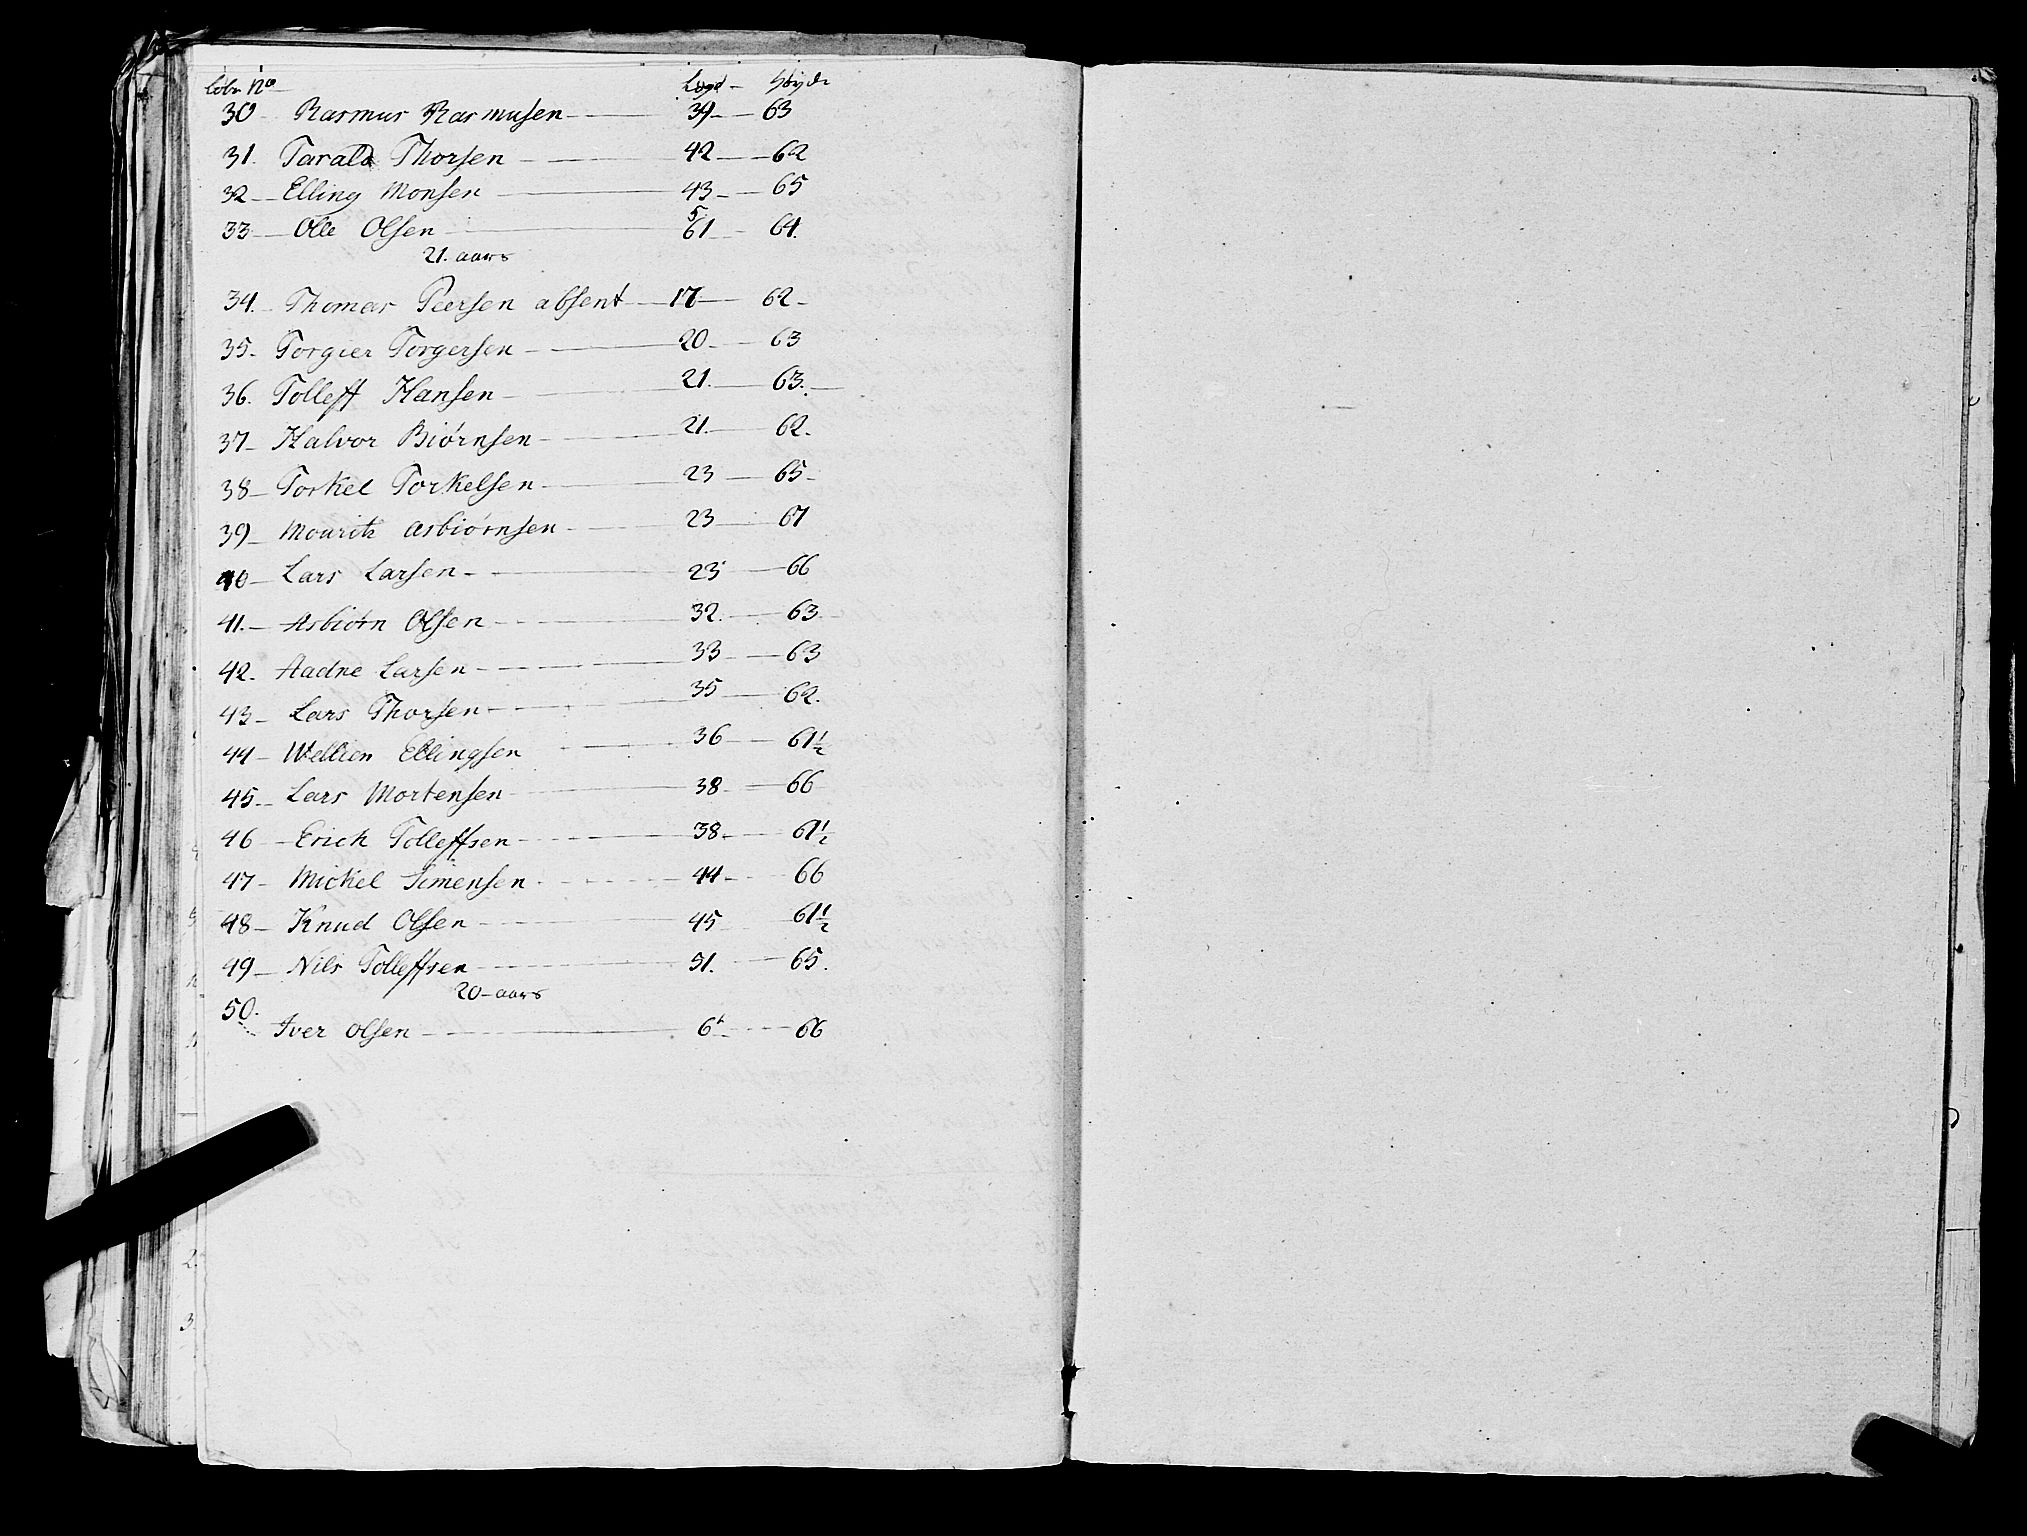 løbe No Lægd – Høyde
30 Rasmus Rasmusen 39 63
31. Tarald Thorsen 42 62
32 Elling Monsen 43 65
33 Olle Olsen 61 64.
21. aars
34. Thomas Peersen absent 17 62
35. Torgier Torgersen 20 63
36. Tolleff Hansen 21. 63.
37 Halvor Biørnsen 21. 62.
38 Torkel Torkelsen 23 65
39 Mouritz Asbiørnsen 23 67
40 Lars Larsen 23 66
41. Asbiørn Olsen 32. 63
42. Aadne Larsen 33 63
43 Lars Thorsen 35 62.
44 Ellingsen 36 61½
45 Lars Mortensen 38 66
46 Erich Tolleffsen 38 61½
47 Mickel Simensen 44 66
48 Knud Olsen 45 61½
49 Nils Tolleffsen 51. 65.
20 aars
50.
Iver Olsen 6 66